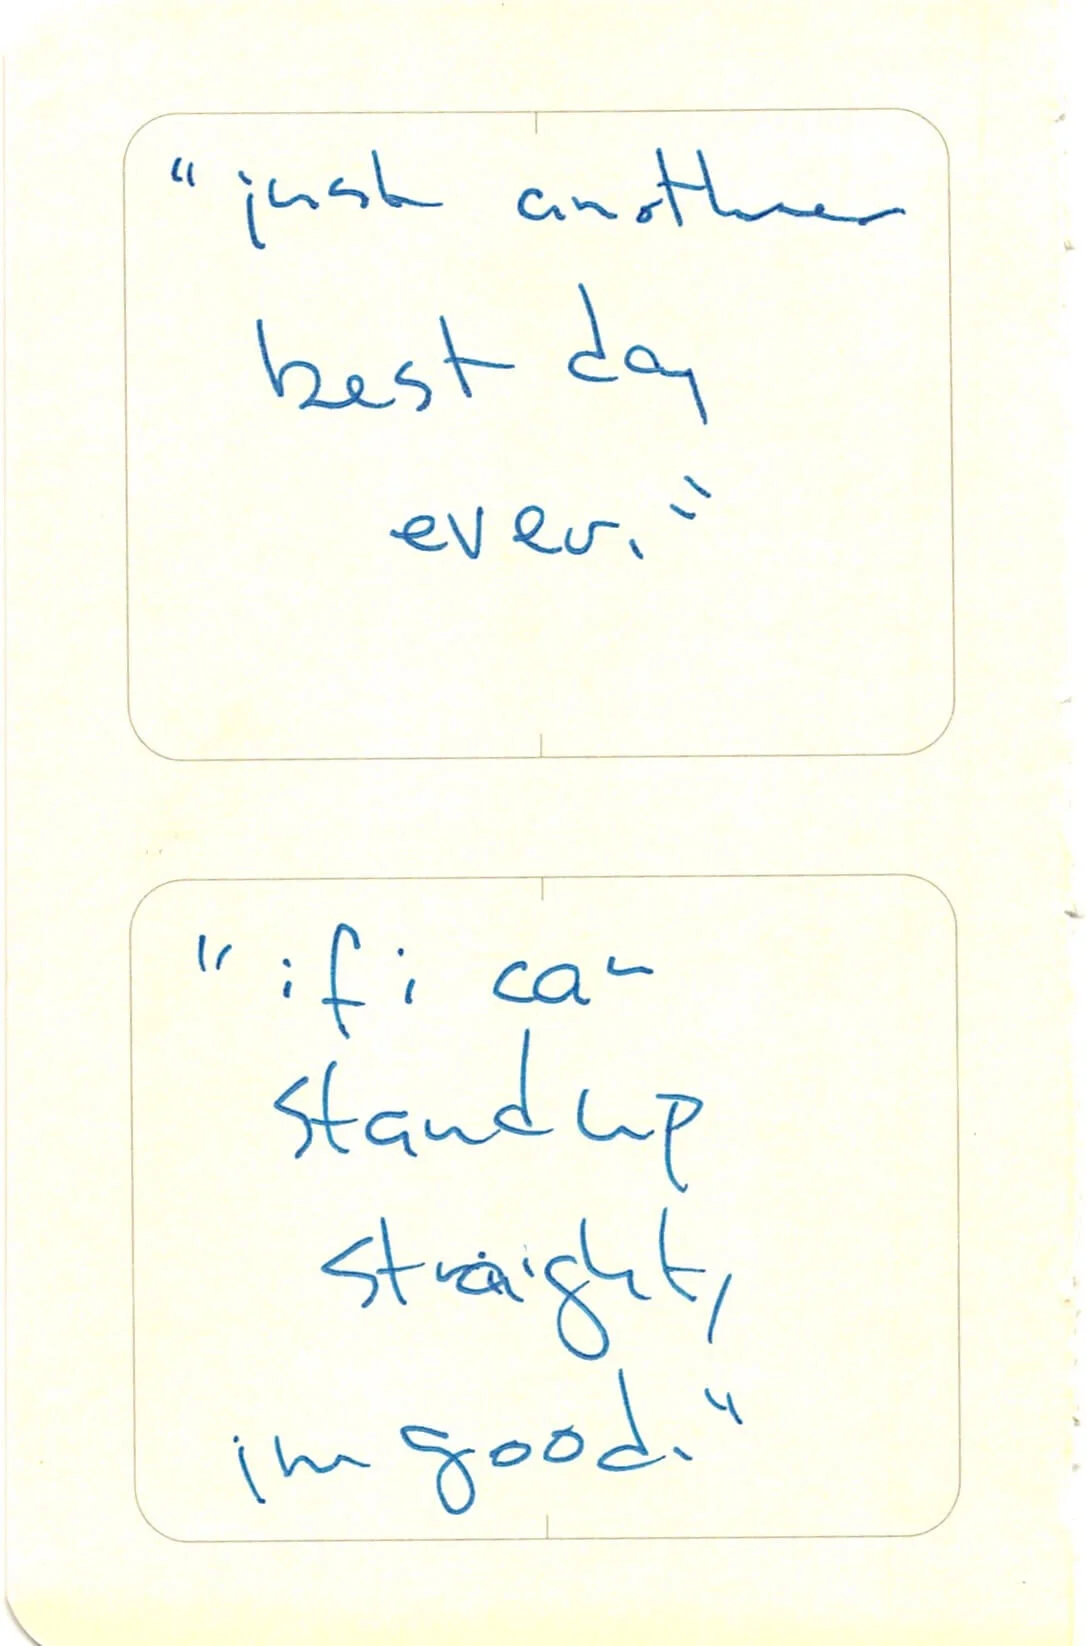 "just another
best day
ever."
"if i can
stand up
straight,
im good."